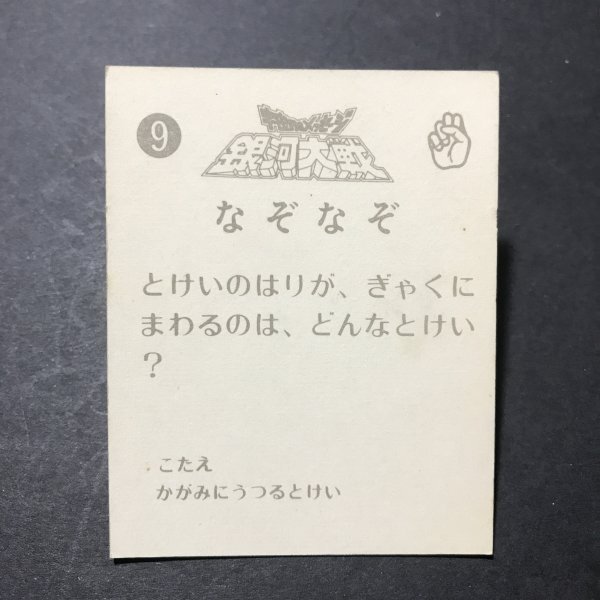 9
宇宙からのメッセージ
銀河大戦
なぞなぞ
とけいのはりが、ぎゃくに
まわるのは、どんなとけい
？
こたえ
かがみにうつるとけい